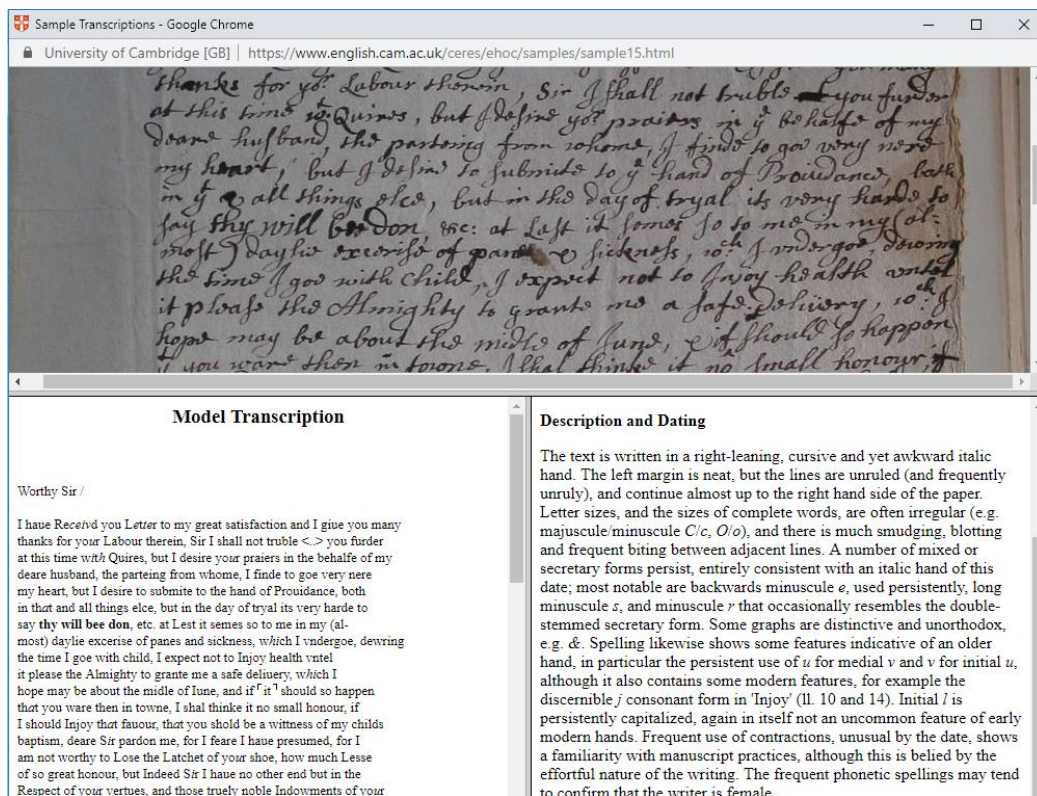 Sample Transcriptions - Google Chrome
University of Cambridge [GB] | https://www.english.cam.ac.uk/ceres/ehoc/samples/sample15.html
thanks for yor. Labour therein, Sir I shall not truble you furder
at this time wth. Quires, but I desire yor praiers in ye behalfe of my
deare husband, the parteing from whome, I finde to goe very nere
my heart, but I desire to submite to ye hand of Prouidance, both
in yt & all things elce, but in the day of tryal its very harde to
say thy will bee don, &c: at Lest it semes so to me in my (al-
most) daylie excerise of panes & sickness, wch I vndergoe, dewring
the time I goe with Child, I expect not to Injoy health vntel
it please the Almighty to grante me a safe deliuery, wch I
hope may be about the midle of Iune, & if should so happen
yt you ware then in towne, I shal thinke it no small honour, if
Model Transcription
Worthy Sir /
I haue Receivd you Letter to my great satisfaction and I giue you many
thanks for your Labour therein, Sir I shall not truble <.> you furder
at this time with Quires, but I desire your praiers in the behalfe of my
deare husband, the parteing from whome, I finde to goe very nere
my heart, but I desire to submite to the hand of Prouidance, both
in that and all things elce, but in the day of tryal its very harde to
say thy will bee don, etc. at Lest it semes so to me in my (al-
most) daylie excerise of panes and sickness, which I vndergoe, dewring
the time I goe with child, I expect not to Injoy health vntel
it please the Almighty to grante me a safe deliuery, which I
hope may be about the midle of Iune, and if ⌜it⌝ should so happen
that you ware then in towne, I shal thinke it no small honour, if
I should Injoy that fauour, that you shold be a wittness of my childs
baptism, deare Sir pardon me, for I feare I haue presumed, for I
am not worthy to Lose the Latchet of your shoe, how much Lesse
of so great honour, but Indeed Sir I haue no other end but in the
Respect of your vertues, and those truely noble Indowments of your
Description and Dating
The text is written in a right-leaning, cursive and yet awkward italic
hand. The left margin is neat, but the lines are unruled (and frequently
unruly), and continue almost up to the right hand side of the paper.
Letter sizes, and the sizes of complete words, are often irregular (e.g.
majuscule/minuscule C/c, O/o), and there is much smudging, blotting
and frequent biting between adjacent lines. A number of mixed or
secretary forms persist, entirely consistent with an italic hand of this
date; most notable are backwards minuscule e, used persistently, long
minuscule s, and minuscule r that occasionally resembles the double-
stemmed secretary form. Some graphs are distinctive and unorthodox,
e.g. &. Spelling likewise shows some features indicative of an older
hand, in particular the persistent use of u for medial v and v for initial u,
although it also contains some modern features, for example the
discernible j consonant form in 'Injoy' (ll. 10 and 14). Initial l is
persistently capitalized, again in itself not an uncommon feature of early
modern hands. Frequent use of contractions, unusual by the date, shows
a familiarity with manuscript practices, although this is belied by the
effortful nature of the writing. The frequent phonetic spellings may tend
to confirm that the writer is female.